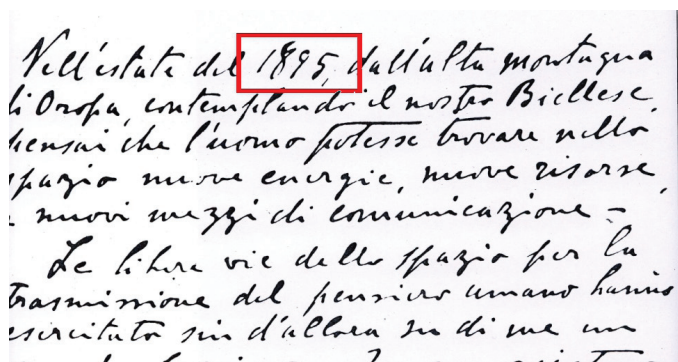 Nell'estate del 1895, dall'alta montagna
di Oropa, contemplando il nostro Biellese,
pensai che l'uomo potesse trovare nello
spazio nuove energie, nuove risorse,
e nuovi mezzi di comunicazione -
Le libere vie dello spazio per la
trasmissione del pensiero umano hanno
esercitato sin d'allora su di me un